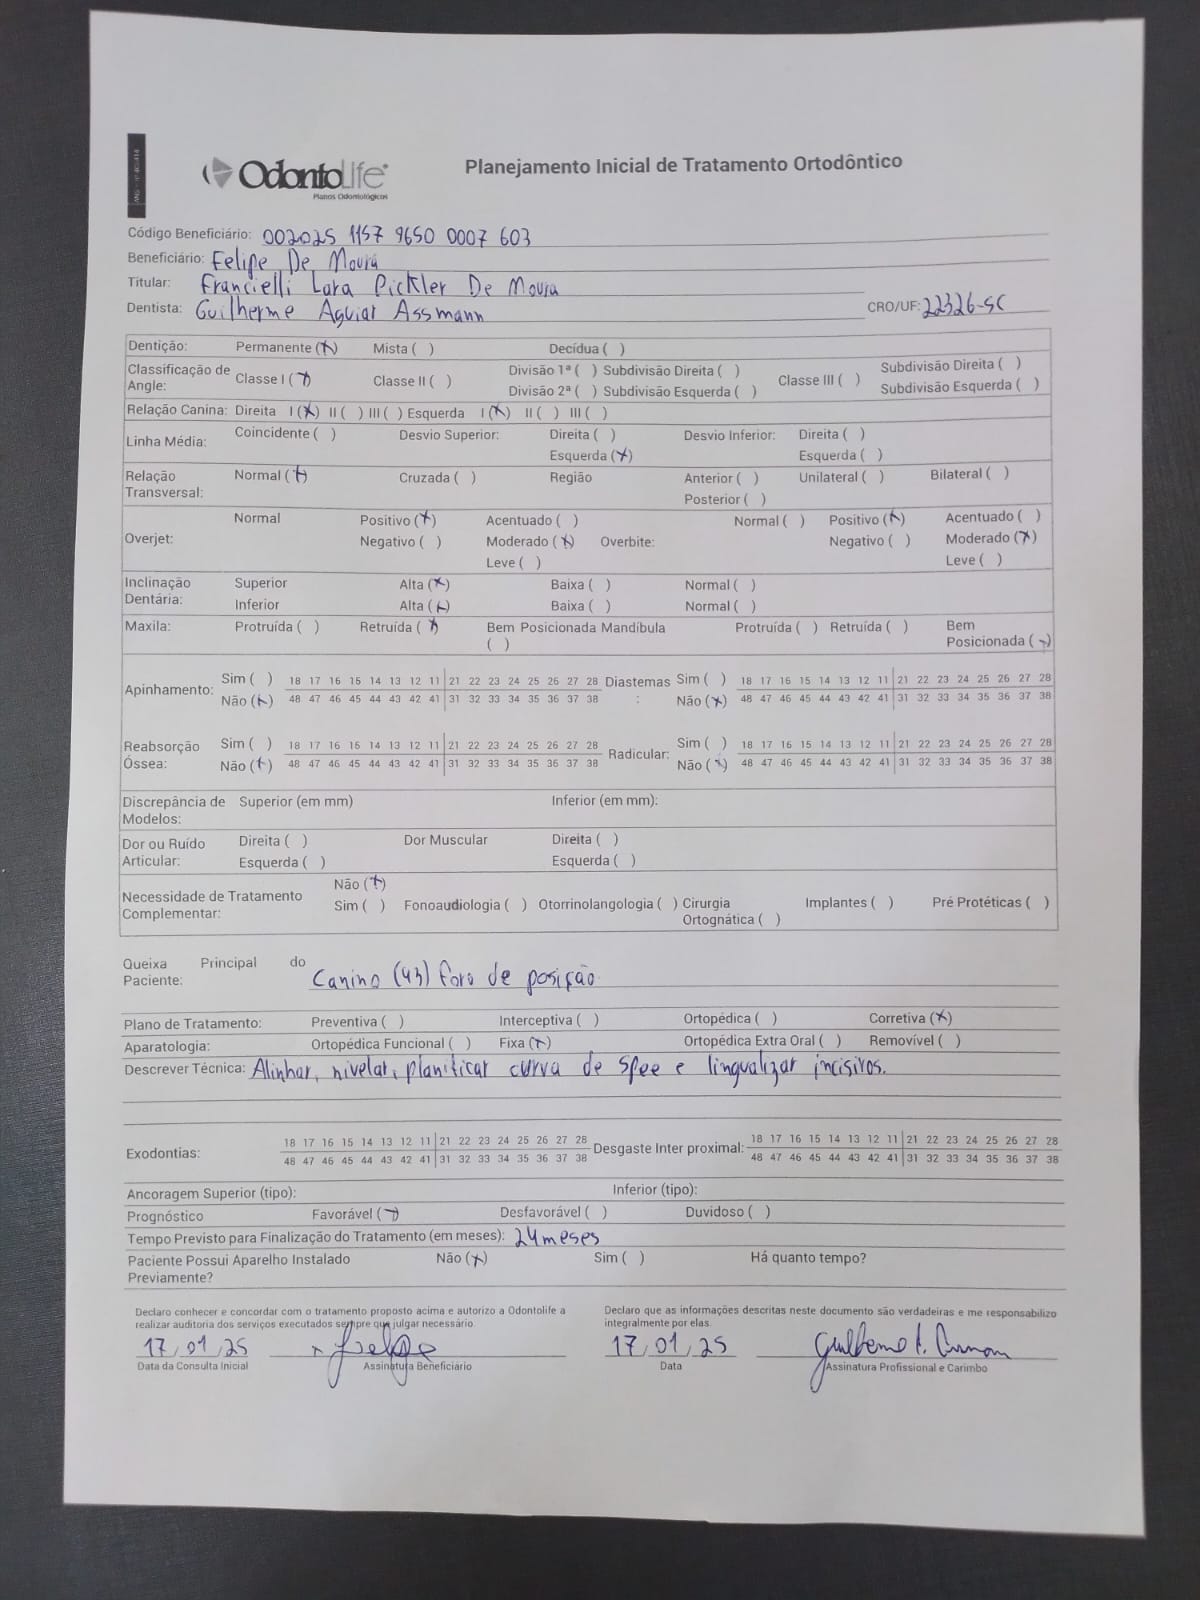 OdontoLife
Planos Odontológicos
Planejamento Inicial de Tratamento Ortodôntico
Código Beneficiário: 002025 1157 9650 0007 603
Beneficiário: Felipe De Moura
Titular: Francielli Lara Pickler De Moura
Dentista: Guilherme Aguiar Assmann CRO/UF: 22326-SC
Dentição: Permanente (x) Mista ( ) Decídua ( )
Classificação de Angle: Classe I (x) Classe II ( ) Divisão 1ª ( ) Subdivisão Direita ( ) Classe III ( ) Subdivisão Direita ( )
Divisão 2ª ( ) Subdivisão Esquerda ( ) Subdivisão Esquerda ( )
Relação Canina: Direita I (x) II ( ) III ( ) Esquerda I (x) II ( ) III ( )
Linha Média: Coincidente ( ) Desvio Superior: Direita ( ) Desvio Inferior: Direita ( )
Esquerda (x) Esquerda ( )
Relação Transversal: Normal (x) Cruzada ( ) Região Anterior ( ) Unilateral ( ) Bilateral ( )
Posterior ( )
Overjet: Normal Positivo (x) Acentuado ( ) Normal ( ) Positivo (x) Acentuado ( )
Negativo ( ) Moderado (x) Overbite: Negativo ( ) Moderado (x)
Leve ( ) Leve ( )
Inclinação Dentária: Superior Alta (x) Baixa ( ) Normal ( )
Inferior Alta (x) Baixa ( ) Normal ( )
Maxila: Protruída ( ) Retruída (x) Bem Posicionada ( ) Mandíbula Protruída ( ) Retruída ( ) Bem Posicionada (x)
Apinhamento: Sim ( ) 18 17 16 15 14 13 12 11 21 22 23 24 25 26 27 28 Diastemas : Sim ( ) 18 17 16 15 14 13 12 11 21 22 23 24 25 26 27 28
Não (x) 48 47 46 45 44 43 42 41 31 32 33 34 35 36 37 38 Não (x) 48 47 46 45 44 43 42 41 31 32 33 34 35 36 37 38
Reabsorção Óssea: Sim ( ) 18 17 16 15 14 13 12 11 21 22 23 24 25 26 27 28 Radicular: Sim ( ) 18 17 16 15 14 13 12 11 21 22 23 24 25 26 27 28
Não (x) 48 47 46 45 44 43 42 41 31 32 33 34 35 36 37 38 Não (x) 48 47 46 45 44 43 42 41 31 32 33 34 35 36 37 38
Discrepância de Modelos: Superior (em mm) Inferior (em mm):
Dor ou Ruído Articular: Direita ( ) Dor Muscular Direita ( )
Esquerda ( ) Esquerda ( )
Necessidade de Tratamento Complementar: Não (x)
Sim ( ) Fonoaudiologia ( ) Otorrinolangologia ( ) Cirurgia Ortognática ( ) Implantes ( ) Pré Protéticas ( )
Queixa Principal do Paciente: Canino (43) fora de posição.
Plano de Tratamento: Preventiva ( ) Interceptiva ( ) Ortopédica ( ) Corretiva (x)
Aparatologia: Ortopédica Funcional ( ) Fixa (x) Ortopédica Extra Oral ( ) Removível ( )
Descrever Técnica: Alinhar, nivelar, planificar curva de Spee e lingualizar incisivos.
Exodontias: 18 17 16 15 14 13 12 11 21 22 23 24 25 26 27 28 Desgaste Inter proximal: 18 17 16 15 14 13 12 11 21 22 23 24 25 26 27 28
48 47 46 45 44 43 42 41 31 32 33 34 35 36 37 38 48 47 46 45 44 43 42 41 31 32 33 34 35 36 37 38
Ancoragem Superior (tipo): Inferior (tipo):
Prognóstico Favorável (x) Desfavorável ( ) Duvidoso ( )
Tempo Previsto para Finalização do Tratamento (em meses): 24 meses
Paciente Possui Aparelho Instalado Previamente? Não (x) Sim ( ) Há quanto tempo?
Declaro conhecer e concordar com o tratamento proposto acima e autorizo a Odontolife a
realizar auditoria dos serviços executados sempre que julgar necessário.
Declaro que as informações descritas neste documento são verdadeiras e me responsabilizo
integralmente por elas.
17,01,25 x Felipe 17,01,25 Guilherme A.
Data da Consulta Inicial Assinatura Beneficiário Data Assinatura Profissional e Carimbo